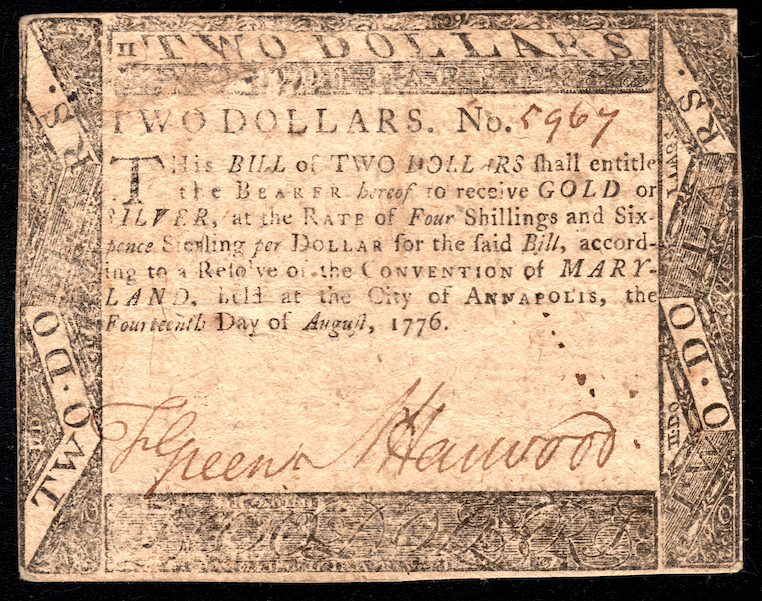 II TWO DOLLARS
TWO DOLLARS. No. 5967
THis BILL of TWO DOLLARS ſhall entitle
the BEARER hereof to receive GOLD or
SILVER, at the RATE of Four Shillings and Six-
pence Sterling per DOLLAR for the ſaid Bill, accord-
ing to a Reſolve of the CONVENTION of MARY-
LAND, held at the City of ANNAPOLIS, the
Fourteenth Day of Auguſt, 1776.
F Green N Harwood.
TWO . DO RS.
TWO . DOLLARS.